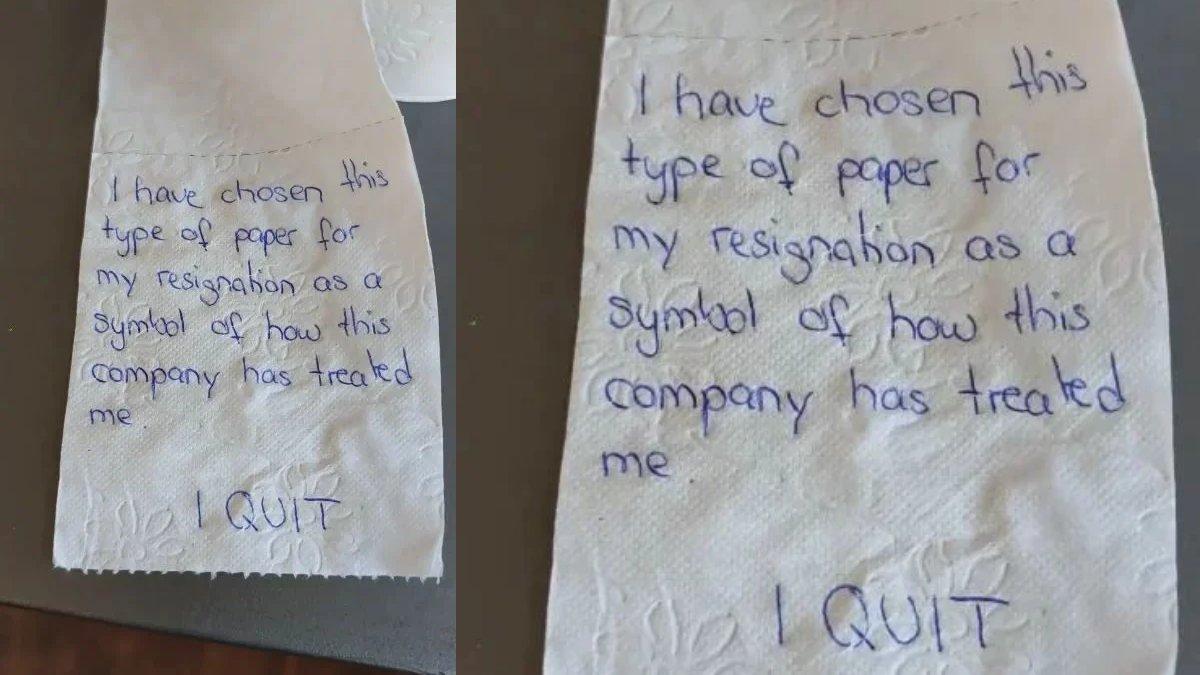 I have chosen this
type of paper for
my resignation as a
symbol of how this
company has treated
me
I QUIT
I have chosen this
type of paper for
my resignation as a
symbol of how this
company has treated
me
I QUIT